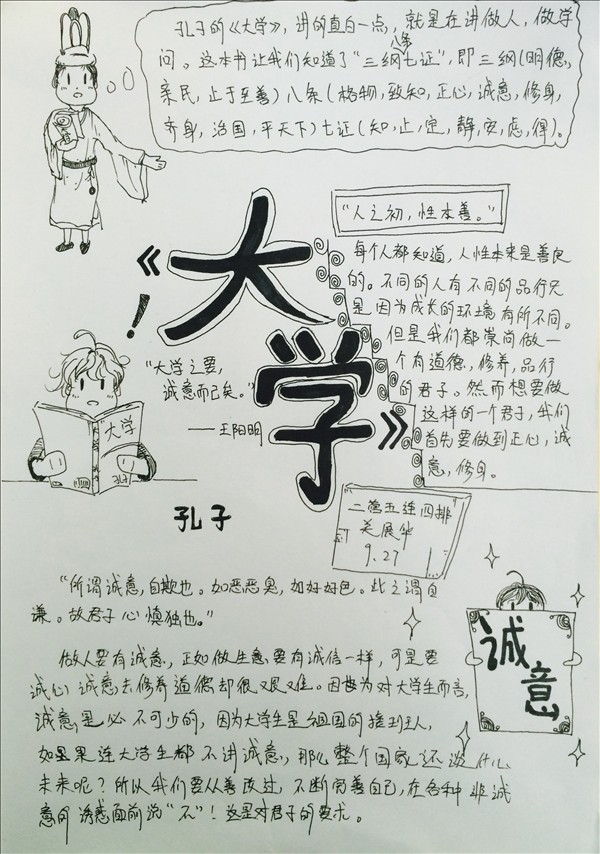 孔子的《大学》，讲的直白一点，就是在讲做人，做学
问。这本书让我们知道了“三纲八条七证”，即三纲（明德，
亲民，止于至善）八条（格物，致知，正心，诚意，修身，
齐身，治国，平天下）七证（知，止，定，静，安，虑，得）。
“人之初，性本善。”
每个人都知道，人性本来是善良
的。不同的人有不同的品行只
是因为成长的环境有所不同。
但是我们都崇尚做一
个有道德，修养，品行
的君子。然而想要做
这样的一个君子，我们
首先要做到正心，诚
意，修身。
《大学》
“大学之要，
诚意而已矣。”
——王阳明
大学
孔子
孔子
二营五连四排
关展华
9.27
“所谓诚意，自欺也。如恶恶臭，如好好色。此之谓自
谦。故君子心慎独也。”
做人要有诚意，正如做生意要有诚信一样，可是要
诚心诚意去修养道德却很艰难。因为对大学生而言，
诚意是必不可少的，因为大学生是祖国的接班人，
如果连大学生都不讲诚意，那么整个国家还谈什么
未来呢？所以我们要从善改过，不断完善自己，在各种非诚
意的诱惑面前说“不”！这是对君子的要求。
诚
意